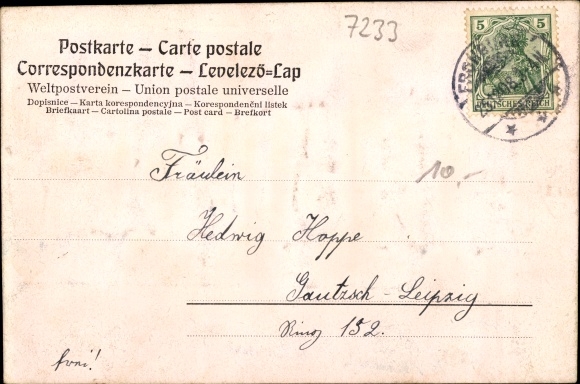 7233
Postkarte – Carte postale
Correspondenzkarte – Levelező=Lap
Weltpostverein – Union postale universelle
Dopisnice – Karta korespondencyjna – Korespondenční listek
Briefkaart – Cartolina postale – Post card – Brefkort
5 5
DEUTSCHES REICH
Fräulein
10,-
Hedwig Hoppe
Gautzsch-Leipzig
Ring 152.
frei!